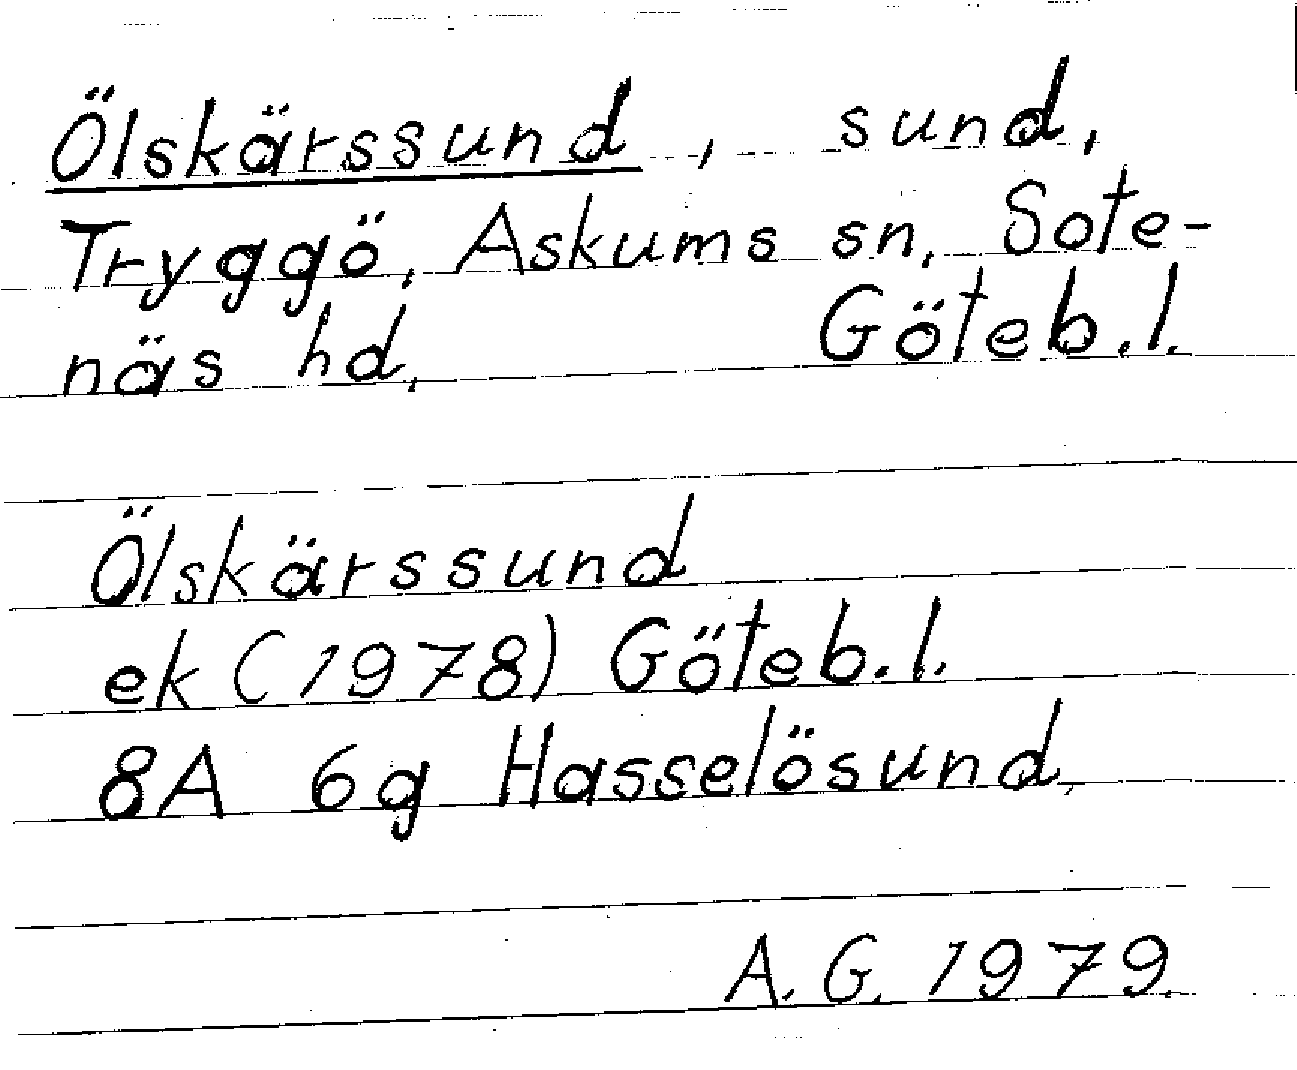 Ölskärssund, sund,
Tryggö, Askums sn, Sote-
näs hd, Göteb.l.
Ölskärssund
ek (1978) Göteb.l.
8A 6g Hasselösund,
A.G. 1979.